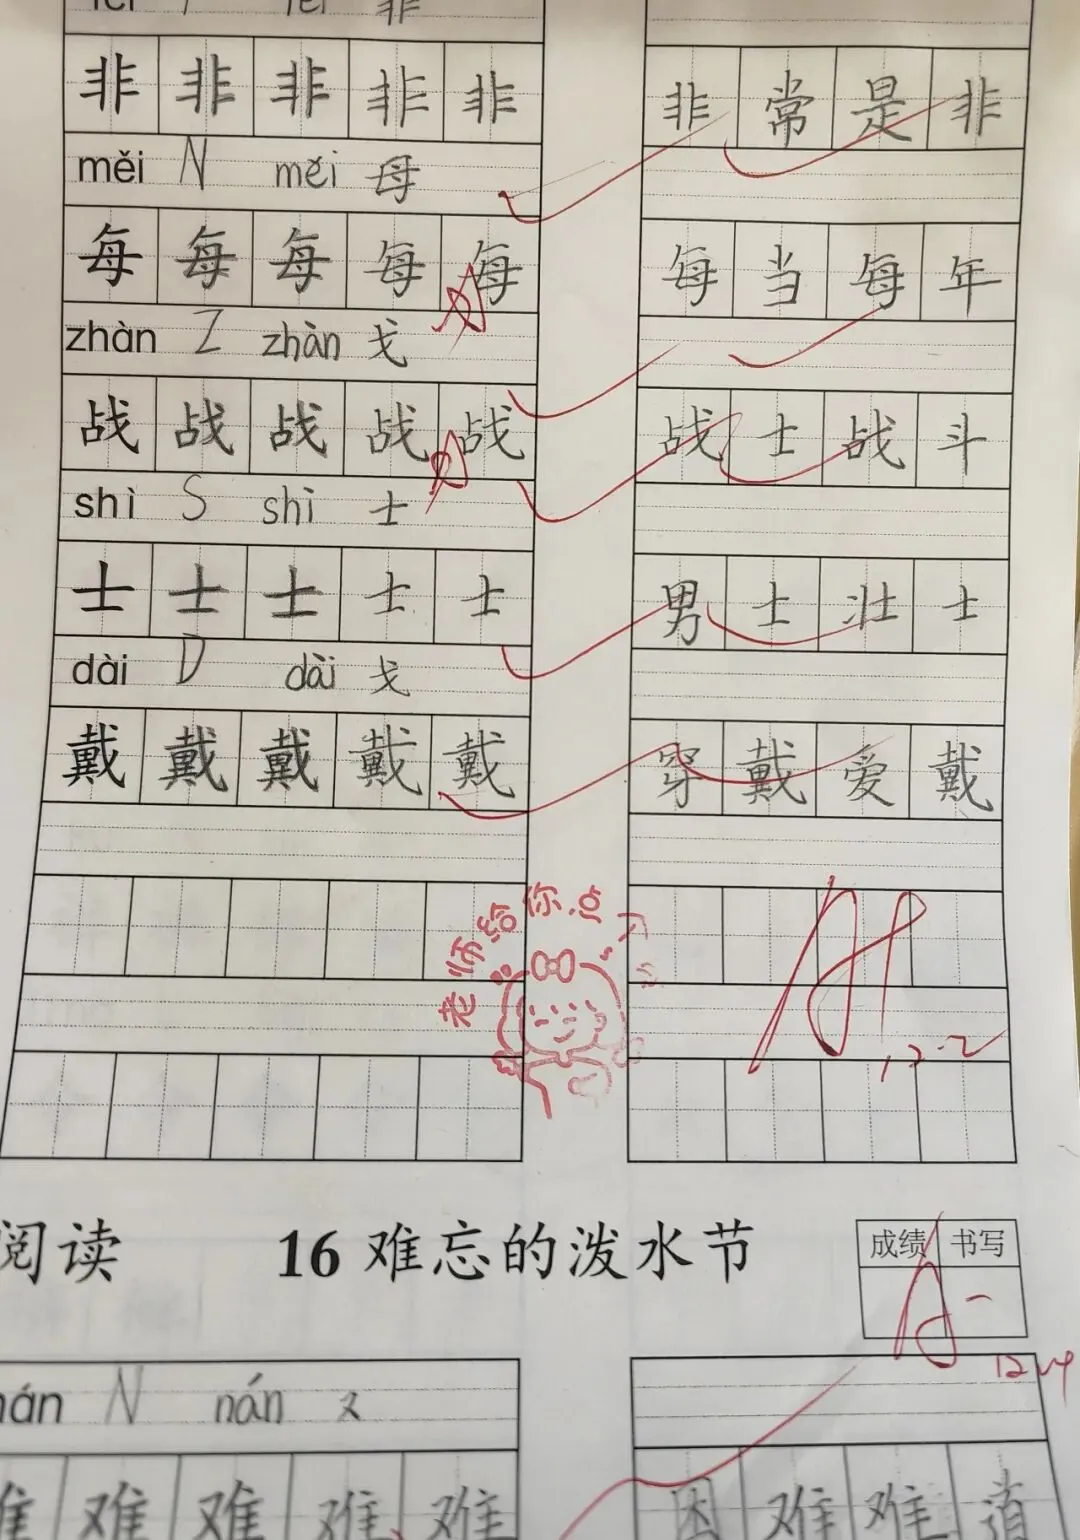 fēi fēi 非
非 非 非 非 非 非 常 是 非
měi N měi 母
每 每 每 每 每 每 当 每 年
zhàn Z zhàn 戈
战 战 战 战 战 战 士 战 斗
shì S shì 士
士 士 士 士 士 男 士 壮 士
dài D dài 戈
戴 戴 戴 戴 戴 穿 戴 爱 戴
老师给你点
12.2
阅读 16 难忘的泼水节 成绩 书写
A-
nán N nán 又
难 难 难 难 难 困 难 难 道